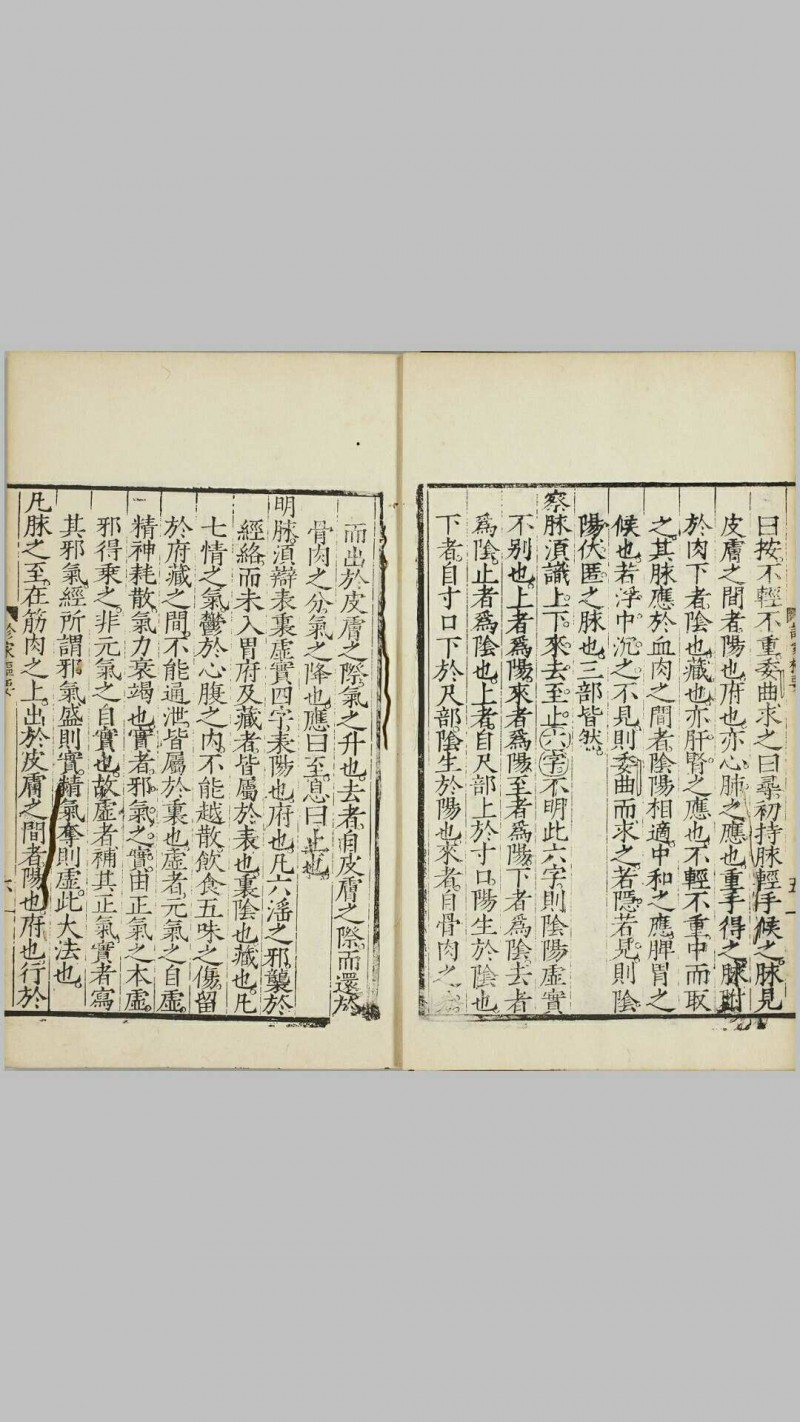 曰按。不輕不重。委曲求之曰尋。初持脉。輕手候之。脉見
皮膚之間者。陽也。府也。亦心肺之應也。重手得之。脉附
於肉下者。陰也。藏也。亦肝腎之應也。不輕不重。中而取
之。其脉應於血肉之間者。陰陽相適。中和之應。脾胃之
候也。若浮中沉之不見。則委曲而求之。若隱若見。則陰
陽伏匿之脉也。三部皆然。
察脉湏識上下。來去至止六字。不明此六字。則陰陽虛實
不别也。上者為陽。來者為陽。至者為陽。下者為陰。去者
為陰。止者為陰也。上者。自尺部上於寸口。陽生於陰也。
下者。自寸口下於尺部。陰生於陽也。來者。自骨肉之
五
而出於皮膚之際。氣之升也。去者。自皮膚之際。而還於
骨肉之分。氣之降也。應曰至。息曰止也。
明脉。湏辯表裏虛實四字。表。陽也。府也。凡六滛之邪。襲於
經絡。而未入胃府及藏者。皆屬於表也。裏。陰也。藏也。凡
七情之氣。鬱於心腹之内。不能越散。飲食五味之傷。留
於府藏之間。不能通泄。皆屬於裏也。虛者。元氣之自虛。
精神耗散。氣力衰竭也。實者。邪氣之實。由正氣之本虛。
邪得乘之。非元氣之自實也。故虛者補其正氣。實者寫
其邪氣。經所謂邪氣盛則實。精氣奪則虛。此大法也。
凡脉之至。在筋肉之上。出於皮膚之間者。陽也。府也。行於
診家樞要
六